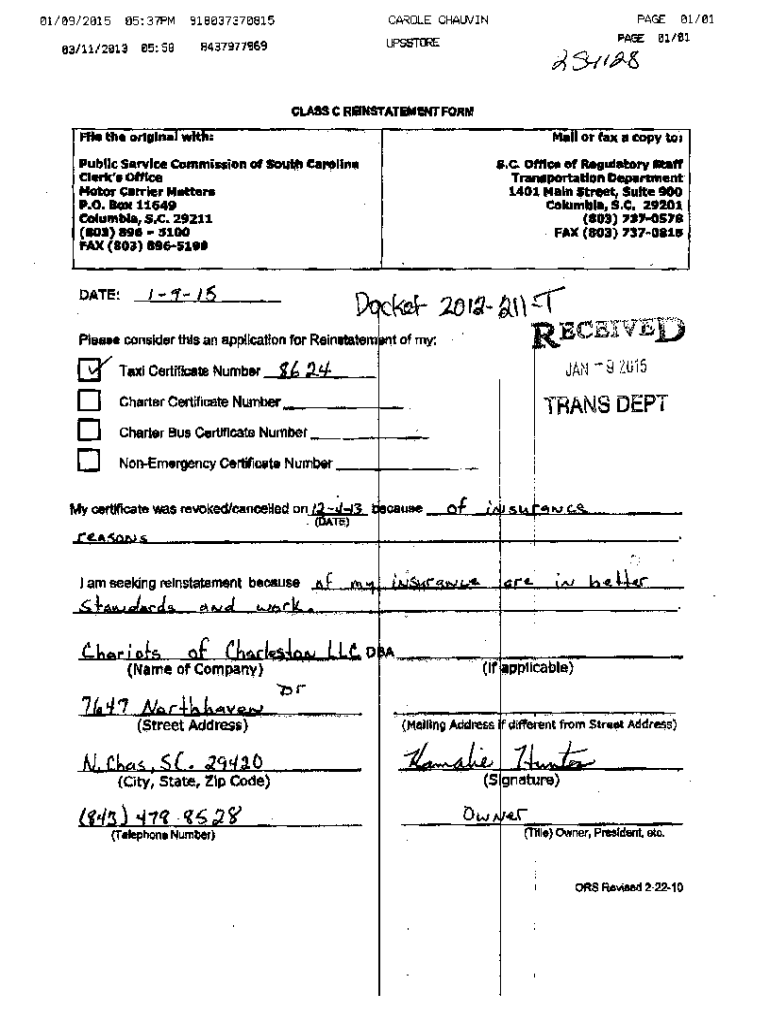 01/09/2015 05:37PM 918037370815 CAROLE CHAUVIN PAGE 01/01
03/11/2013 05:50 8437977969 UPSSTORE PAGE 01/01
254128
CLASS C REINSTATEMENT FORM
File the original with: Mail or fax a copy to:
Public Service Commission of South Carolina S.C. Office of Regulatory Staff
Clerk's Office Transportation Department
Motor Carrier Matters 1401 Main Street, Suite 900
P.O. Box 11649 Columbia, S.C. 29201
Columbia, S.C. 29211 (803) 737-0578
(803) 896 - 5100 FAX (803) 737-0815
FAX (803) 896-5199
DATE: 1-9-15
Docket 2012-211-T
RECEIVED
Please consider this an application for Reinstatement of my:
JAN - 9 2015
Taxi Certificate Number 8624
TRANS DEPT
Charter Certificate Number
Charter Bus Certificate Number
Non-Emergency Certificate Number
My certificate was revoked/cancelled on 12-4-13 because of insurance
(DATE)
reasons
I am seeking reinstatement because of my insurance are in better
standards and work.
Chariots of Charleston LLC DBA
(Name of Company) (If applicable)
7647 Northhaven Dr
(Street Address) (Mailing Address if different from Street Address)
N. Chas, SC. 29420 Hunter
(City, State, Zip Code) (Signature)
(843) 478-8528 Owner
(Telephone Number) (Title) Owner, President, etc.
ORS Revised 2-22-10